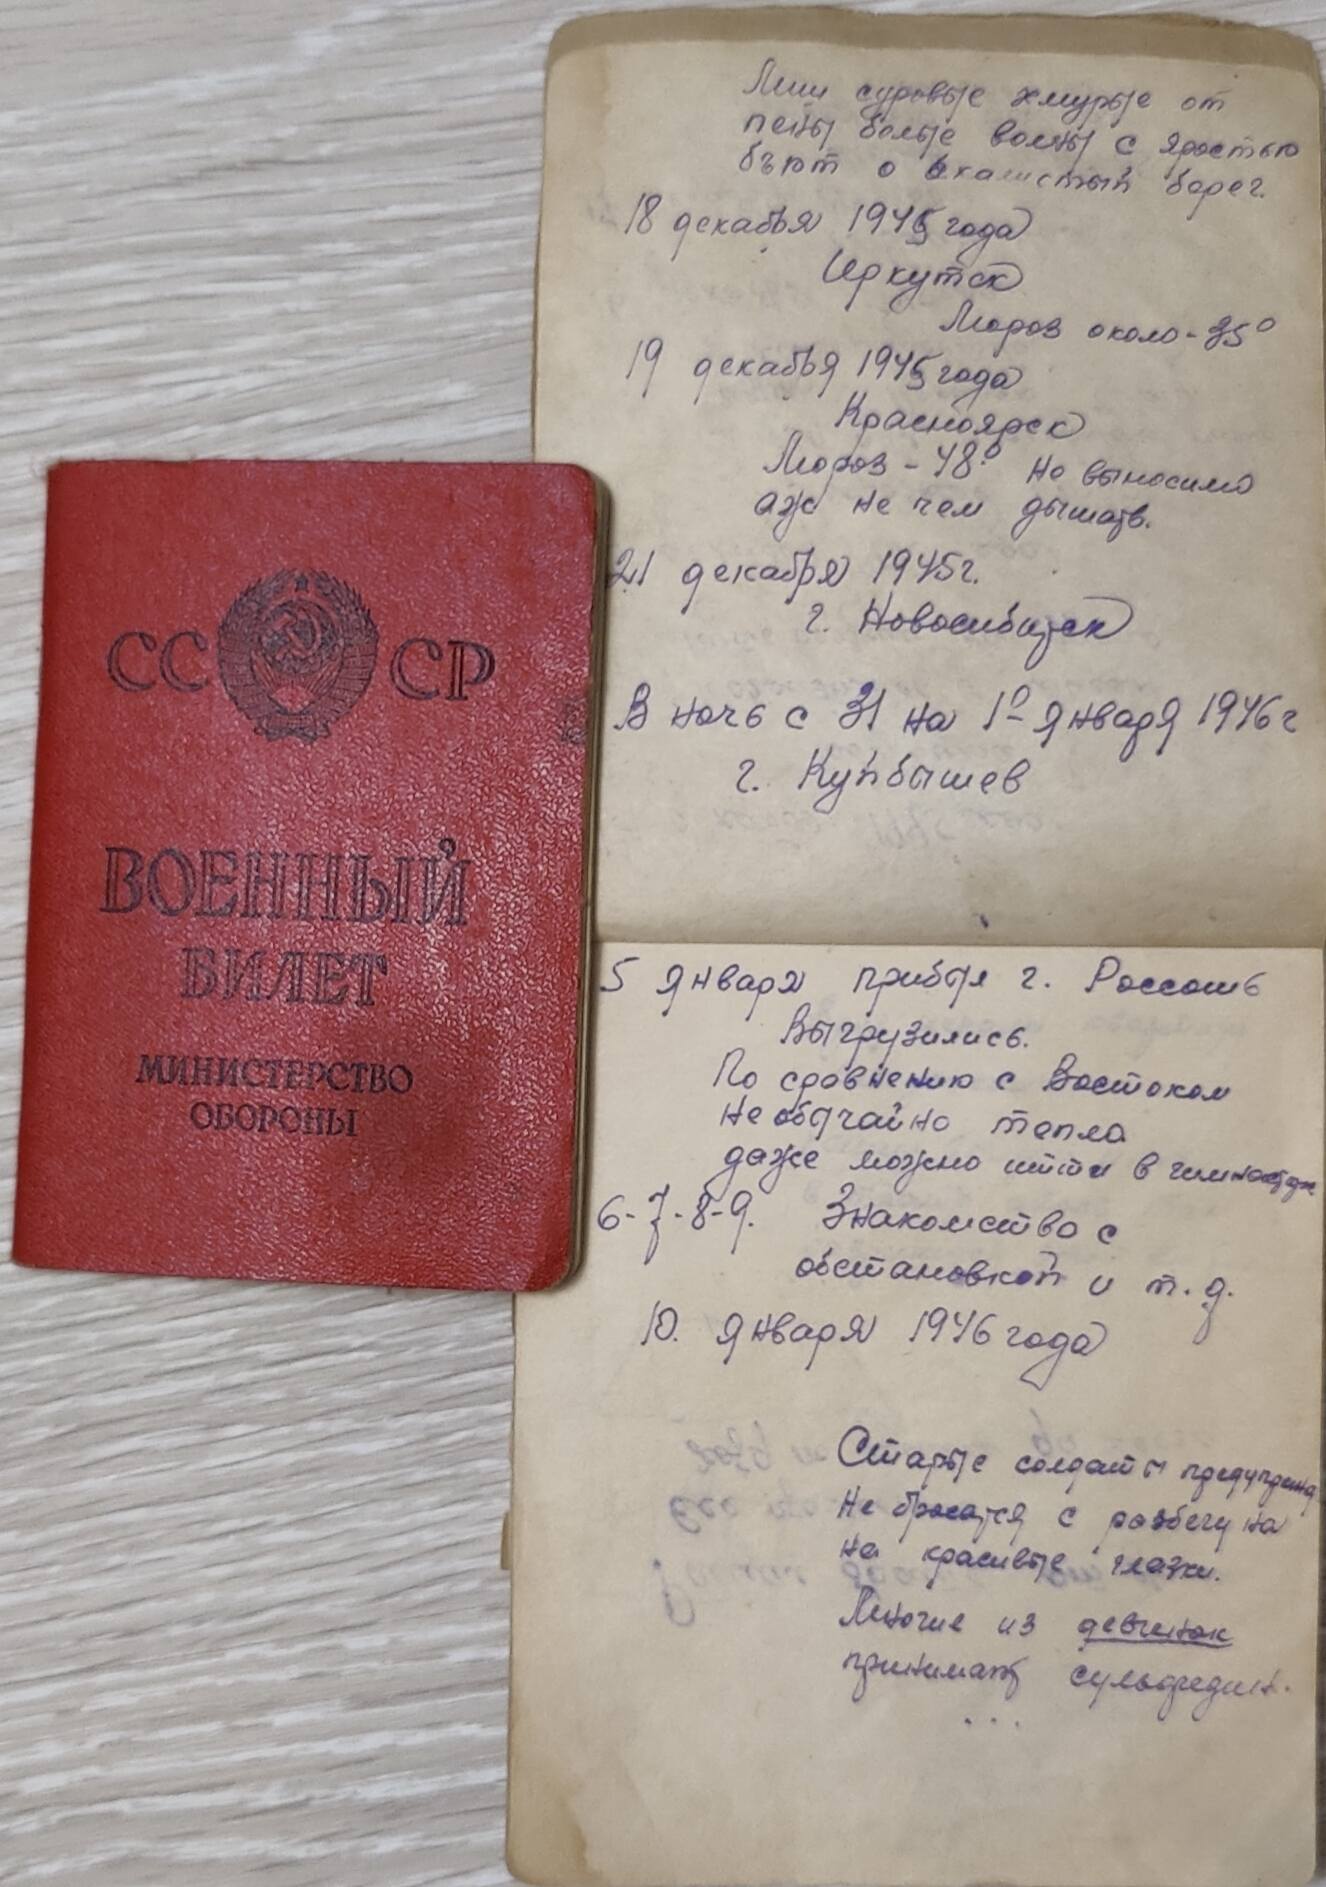 СССР
ВОЕННЫЙ
БИЛЕТ
МИНИСТЕРСТВО
ОБОРОНЫ
Лиш суровые хмурые от
пены белые волны с яростью
бьют о скалистый берег.
18 декабря 1945 года
Иркутск
Мороз около -35°
19 декабря 1945 года
Красноярск
Мороз -48° Не выносимо
аж не чем дышать.
21 декабря 1945г.
г. Новосибирск
В ночь с 31 на 1е января 1946г
г. Куйбышев
5 января прибыл г. Россошь
Выгрузились.
По сравнению с Востоком
Необычайно тепло
даже можно итти в
6-7-8-9. Знакомство с
обстановкой и т.д.
10. января 1946 года
Старые солдаты
Не бросатся с разбегу на
на красивые глазки.
Многие из девченок
принимают
...